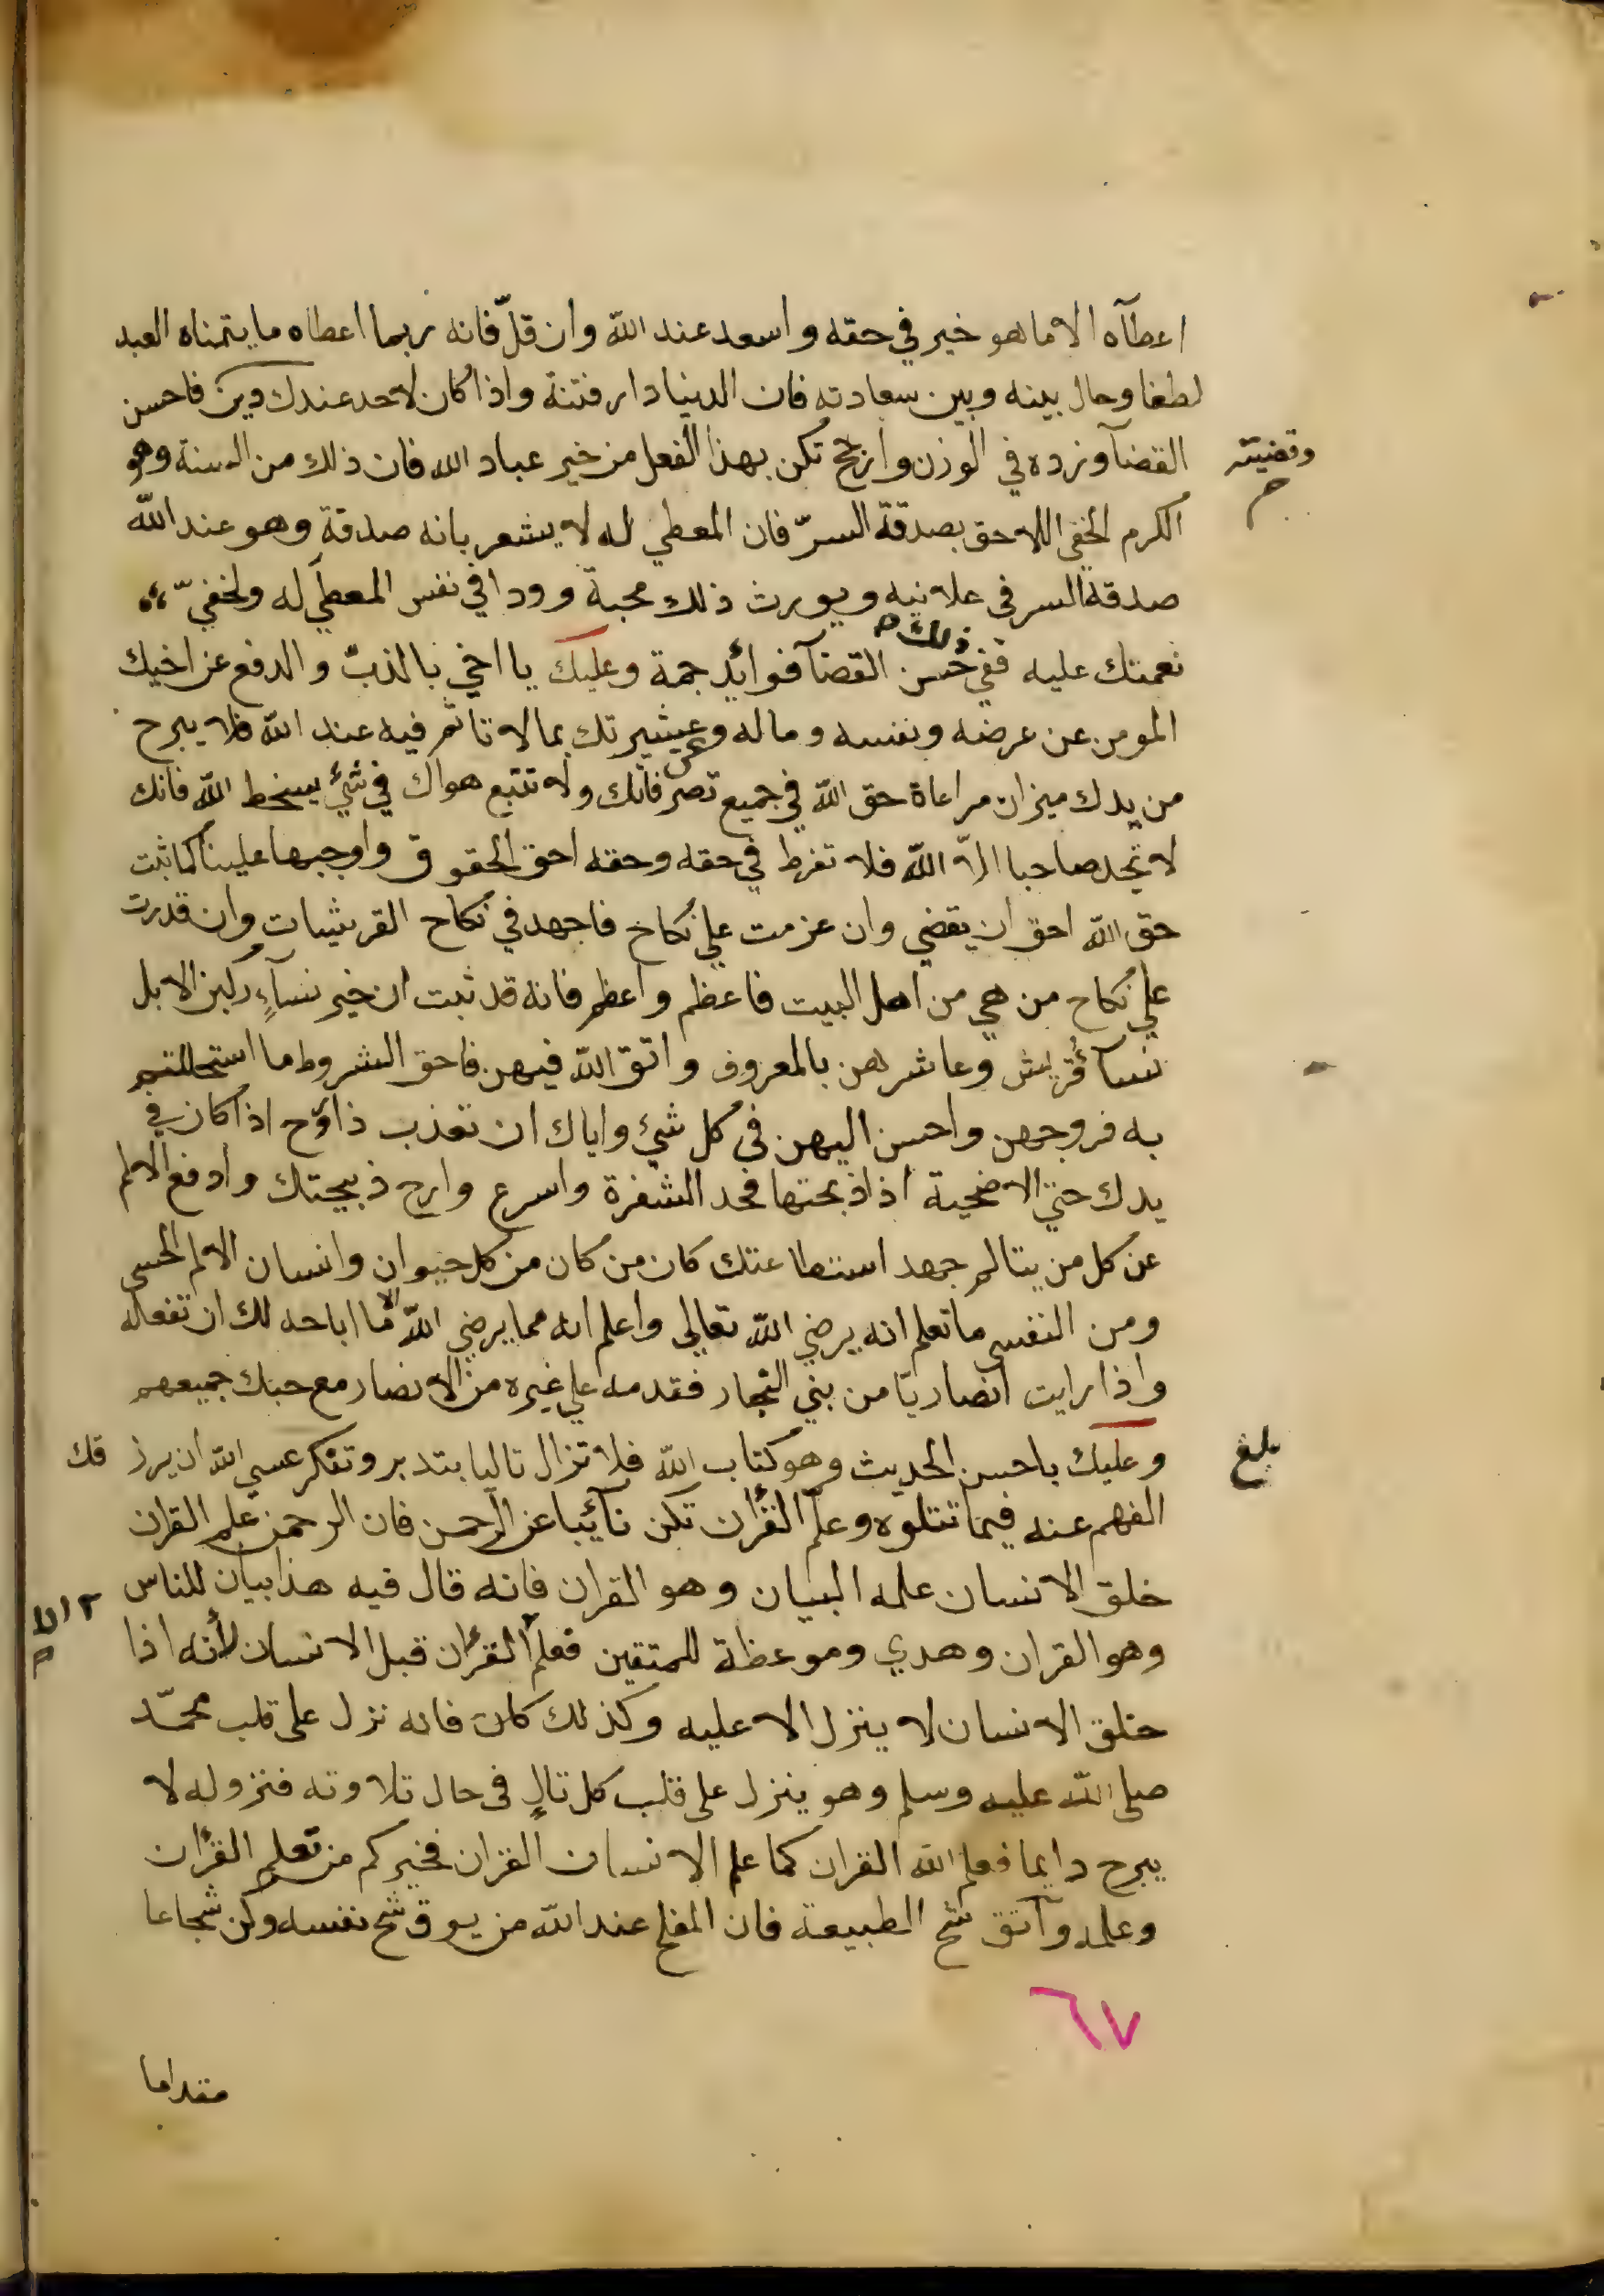 اعطآه الا ما هو خير في حقه واسعد عند الله وان قلّ فانه ربما اعطاه ما يتمناه العبد
لطفا وحال بينه وبين سعادته فان الدنيا دار فتنة واذا كان لاحد عندك دين فاحسن
القضآ وزده في الوزن وارجح تكن بهذا الفعل من خير عباد الله فان ذلك من السنة وهو
الكرم الخفي اللاحق بصدقة السرّ فان المعطي له لا يشعر بانه صدقة وهو عند الله
صدقة السر في علانيه ويورث ذلك محبة وودا في نفس المعطي له ولخفيّ
ذلك
نعمتك عليه ففي حسن القضآ فوائد جمة وعليك يا اخي بالذبّ والدفع عن اخيك
المومن عن عرضه ونفسه وماله وعن عشيرتك بما لا تاثم فيه عند الله فلا يبرح
من يدك ميزان مراعاة حق الله في جميع تصرفاتك ولا تتبع هواك في شئ يسخط الله فانك
لا تجد صاحبا الاّ الله فلا تفرط في حقه وحقه احق الحقوق واوجبها علينا كما ثبت
حق الله احق ان يقضي وان عزمت علي نكاح فاجهد في نكاح القريشيات وان قدرت
علي نكاح من هي من اهل البيت فاعظم واعظم فانه قد ثبت ان خير نسآءٍ ركبن الابل
نسآ قُريش وعاشرهن بالمعروف واتق الله فيهن فاحق الشروط ما استحللتم
به فروجهن واحسن اليهن في كل شئ واياك ان تعذب ذا روح اذا كان في
يدك حتي الاضحية اذا ذبحتها فحد الشفرة واسرع وارح ذبيحتك وادفع الالم
عن كل من يتالم جهد استطاعتك كان من كان من كل حيوان وانسان الالم الحسي
ومن النفسي ما تعلم انه يرضي الله تعالي واعلم انه مما يرضي الله ما اباحه لك ان تفعله
واذا رايت انصاريّا من بني النجار فقدمه علي غيره من الانصار مع حبك جميعهم
وعليك باحسن الحديث وهو كتاب الله فلا تزال تاليا بتدبر وتفكر عسي الله ان يرزقك
بلغ
الفهم عنه فيما تتلوه وعلّم القرٔان تكن نآئبا عن الرحمن فان الرحمن علم القران
خلق الانسان علمه البيان وهو القران فانه قال فيه هذا بيان للناس
وهو القران وهدي وموعظة للمتقين فعلم القرٔان قبل الانسان لأنه اذا
خلق الانسان لا ينزل الا عليه وكذلك كان فانه نزل على قلب محمّد
صلى الله عليه وسلم وهو ينزل على قلب كل تالٍ في حال تلاوته فنزوله لا
يبرح دايما فعلم الله القران كما علم الانسان القران فخيركم من تعلم القرٔان
وعلمه وآتق شح الطبيعة فان المفلح عند الله من يوق شح نفسه وكن شجاعا
٦٧
مقداما